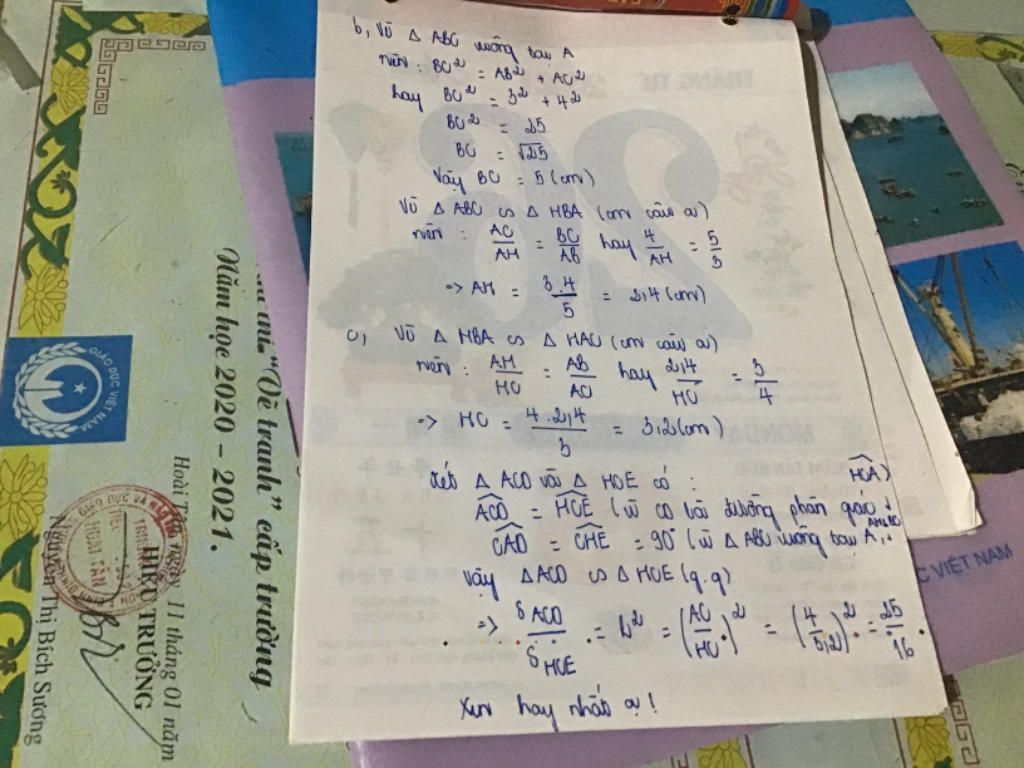 b, Vì Δ ABC vuông tại A
nên : BC² = AB² + AC²
hay BC² = 3² + 4²
BC² = 25
BC = √25
Vậy BC = 5 (cm)
Vì Δ ABC ∽ Δ HBA (cm câu a)
nên : AC/AH = BC/AB hay 4/AH = 5/3
=> AH = 3.4/5 = 2,4 (cm)
c, Vì Δ HBA ∽ Δ HAC (cm câu a)
nên : AH/HC = AB/AC hay 2,4/HC = 3/4
=> HC = 4.2,4/3 = 3,2 (cm)
Xét Δ ACD và Δ HCE có :
ACD = HCE (vì CD là đường phân giác HCA)
CAD = CHE = 90° (vì Δ ABC vuông tại A, AH⊥BC
Vậy ΔACD ∽ ΔHCE (g.g)
=> S ACD / S HCE = k² = (AC/HC)² = (4/3,2)² = 25/16
Xin hay nhất ạ !
"Vẽ tranh" cấp trường
Năm học 2020 - 2021.
Hoài Tân, ngày 11 tháng 01 năm
HIỆU TRƯỞNG
Nguyễn Thị Bích Sương
GIÁO DỤC VIỆT NAM
THÁNG TƯ
MONDAY
C VIỆT NAM